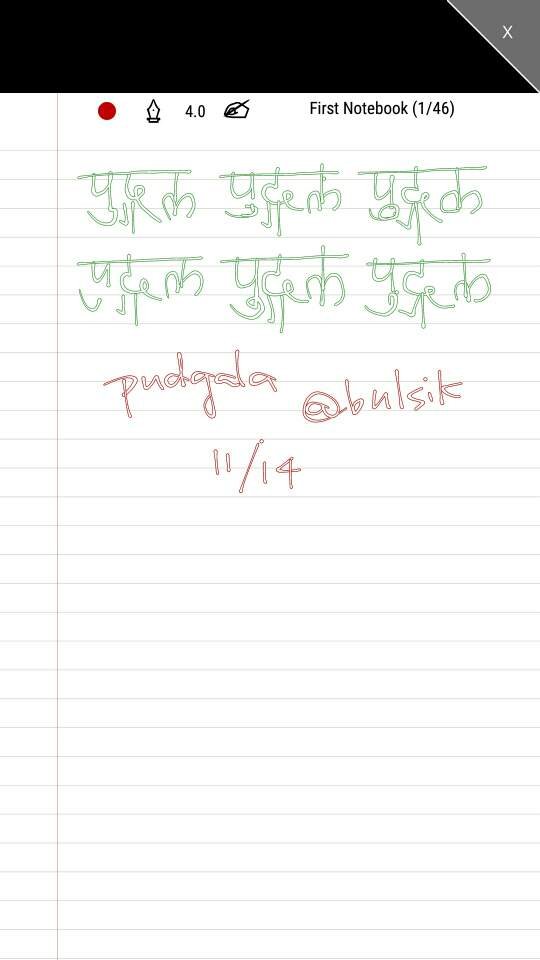 X
4.0 First Notebook (1/46)
पुद्गल पुद्गल पुद्गल
पुद्गल पुद्गल पुद्गल
pudgala @bulsik
11/14